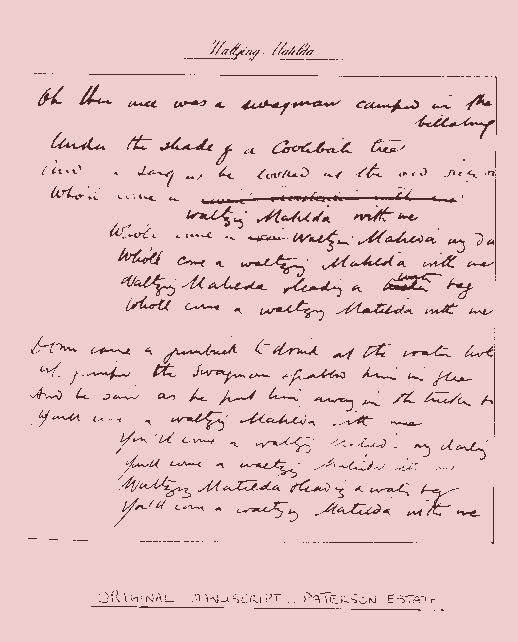 Waltzing Matilda
Oh there once was a swagman camped in the
billabong
Under the shade of a Coolibah tree
And he sang as he looked at the old
Who'll come a
waltzing Matilda with me
Who'll come a waltzing Matilda my da
Who'll come a waltzing Matilda with me
Waltzing Matilda leading a water bag
Who'll come a waltzing Matilda with me
Down came a jumbuck to drink at the water hole
Up jumped the swagman & grabbed him in glee
And he said as he put him away in the tucker b
You'll come a waltzing Matilda with me
You'll come a waltzing Matilda my darling
You'll come a waltzing Matilda with me
Waltzing Matilda leading a water bag
You'll come a waltzing Matilda with me
ORIGINAL MANUSCRIPT.. PATERSON ESTATE